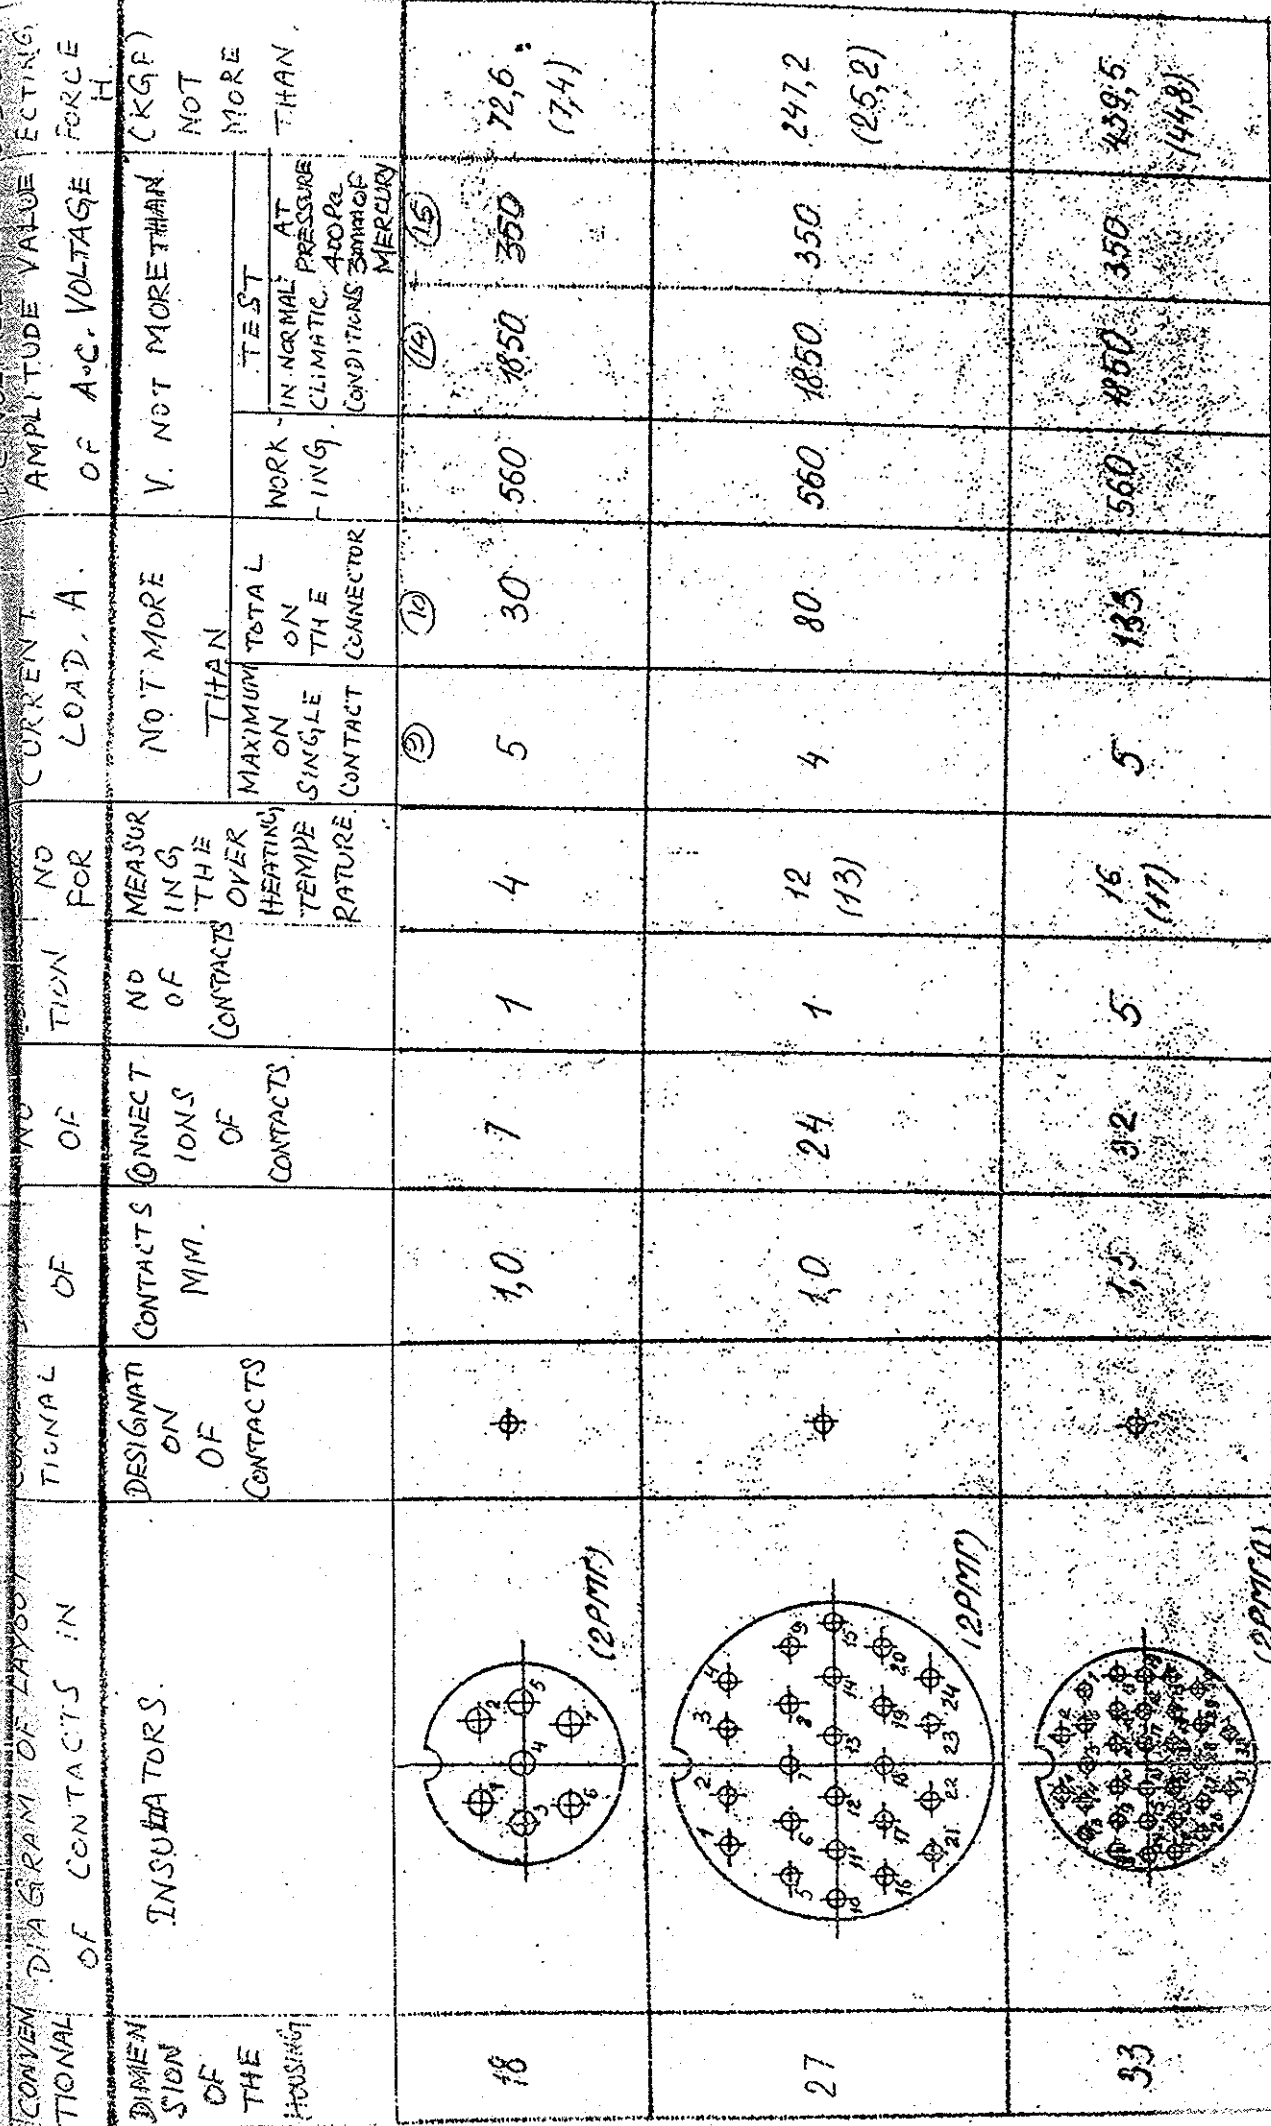 CONVEN
TIONAL
DIMEN
SION
OF
THE
HOUSING
DIAGRAM OF LAYOUT
OF CONTACTS IN
INSULATORS.
TIONAL
DESIGNATI
ON
OF
CONTACTS
OF
CONTACTS
MM.
NO
OF
CONNECT
IONS
OF
CONTACTS.
TION
NO
OF
CONTACTS
NO
FOR
MEASUR
ING
THE
OVER
HEATING
TEMPE
RATURE.
CURRENT
LOAD. A.
NOT MORE
THAN
MAXIMUM
ON
SINGLE
CONTACT
TOTAL
ON
THE
CONNECTOR
AMPLITUDE VALUE
OF A.C. VOLTAGE
V. NOT MORE THAN
WORK -
- ING.
TEST
IN NORMAL
CLIMATIC
CONDITIONS
AT
PRESSURE
400Pa
3mm OF
MERCURY
ECTING
FORCE
H
(KGF)
NOT
MORE
THAN.
18
1 2
3 4 5
6 7
(2РМГ)
1,0
7
1
4
5
30
560
1850
350
72,6
(7,4)
(10)
(14)
(15)
27
1 2 3 4
5 6 7 8 9
10 11 12 13 14 15
16 17 18 19 20
21 22 23 24
(2РМГ)
1,0
24
1
12
(13)
4
80
560
1850
350
247,2
(25,2)
33
1,5
32
5
16
(17)
5
560
1850
350
439,5
(44,8)